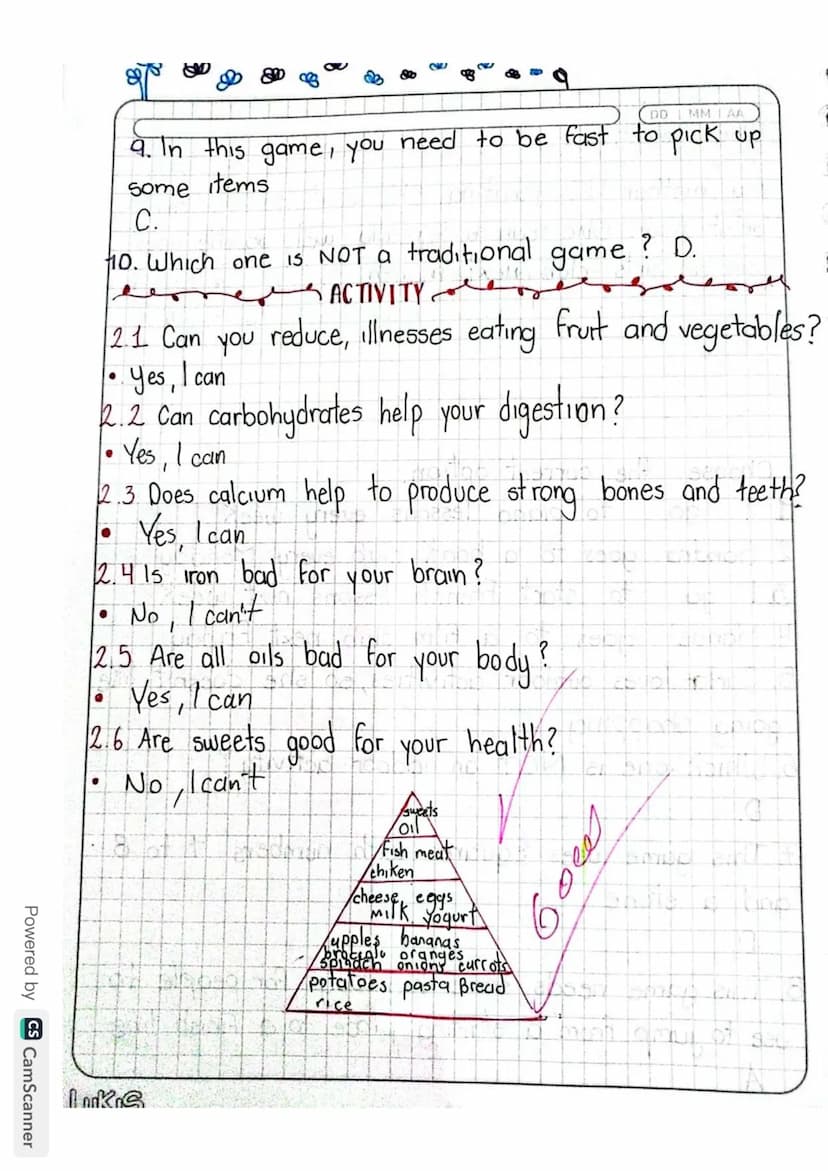 DD MM AA
9. In this game, you need to be fast to pick up
some items
C.
10. Which one is NOT a traditional game? D.
ACTIVITY
2.1 Can you reduce, illnesses eating fruit and vegetables?
• Yes, I can
2.2 Can carbohydrates help your digestion?
• Yes, I can
2.3 Does calcium help to produce strong bones and teeth?
• Yes, I can
2.4 Is iron bad for your brain?
• No, I can't
2.5 Are all oils bad for your body?
• Yes, I can
2.6 Are sweets good for your health?
• No, I can't
sweets
oil
fish meat
chiken
cheese, eggs
milk yogurt
apples bananas
oranges
spinach onions carrots
potatoes pasta Bread
rice
Good
Powered by CS CamScanner